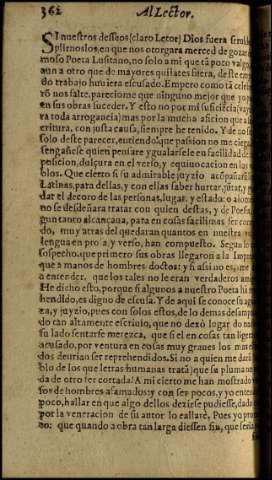 362
Al Lector.
SI nuestros desseos (claro Letor) Dios fuera seruido
plirnoslos, en que nos otorgara merced de gozar
moso Poeta Lusitano, no solo a mi que tã poco valgo,
aun a otro que de mayores quilates fuera, deste
do trabajo huuiera escusado. Empero como tã celebre
rõ nos falte, pareciome que ninguno mejor que yo
en sus obras suceder. Y esto no por mi suficiẽcia
ra toda arrogancia) mas por la mucha aficion que a
critura, con justa causa, siempre he tenido. Y de no
solo deste parecer, entiendo, que passion no me ciega
sengañese quien pensare ygualarsele en facilidad de
posicion, dulçura en el verso, y equiuocacion en los
blos. Que cierto si su admirable juyzio acõpañara
Latinas, para dellas, y con ellas saber hurtar, y
dar el decoro de las personas, lugar, y estado: o alomenos
no se desdeñara tratar con quien destas, y de Poesia
gun tanto alcançaua, para en cosas facilimas ser
do, muy atras del quedaran quantos en nuestra
lengua en prosa, y verso, han compuesto. Segun lo
sospecho, que primero sus obras llegaron a la
que a manos de hombres doctos: y si assi no es, me
a entender, que los tales no le eran verdaderos
He dicho esto, porque si algunos a nuestro Poeta
hendido, es digno de escusa. Y de aqui se conoce su
za, y juyzio, pues con solos estos, de lo demas
do tan altamente escriuio, que no dexò lugar do
su lado sentarse merezca, que si el en cosas tan ligeras
acusado, por ventura en cosas muy graues los mas
dos deurian ser reprehendidos. Si no a quien me darà
blo de los que letras humanas tratã, que su pluma no
da de otro ser cortada? A mi cierto me han mostrado
for de hombres afamados: y con ser pocos, y yo entender
poco, hallar en que algo dellos deziese pudiesse, dado
por la veneracion de su autor lo callarè. Pues yo
do: que quando a obra tan larga diessen fin, que seria